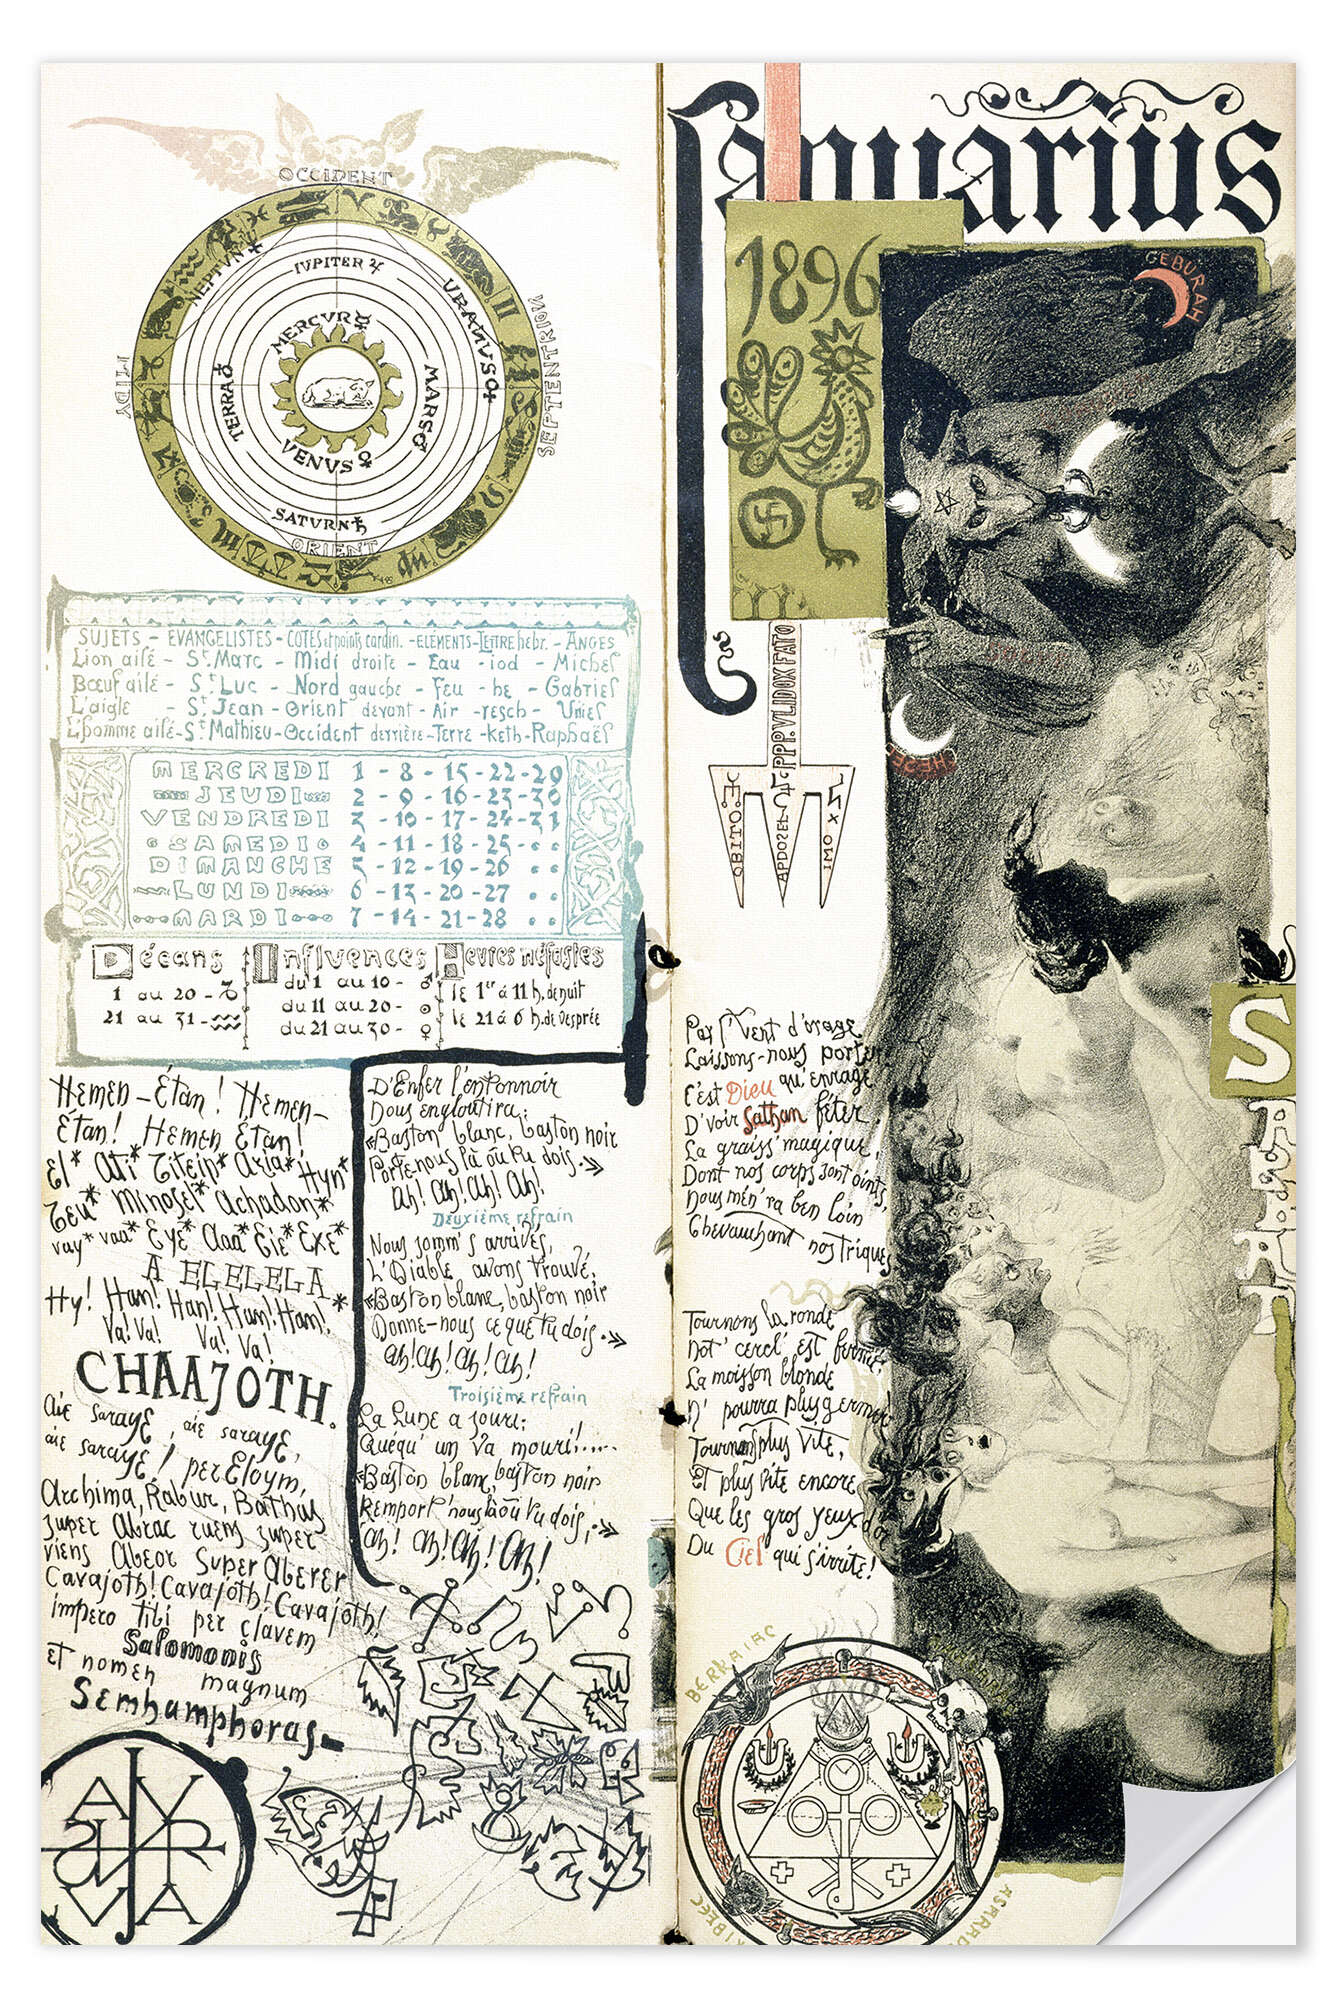 OCCIDENT
NEPTVN
IVPITER ♃
VRANVS
MERCVR ☿
TERRA
MARS
VENVS ♀
SATVRN ♄
ORIENT
MIDY
SEPTENTRION
SUJETS - EVANGELISTES - COTES et points cardin. - ELEMENTS - LETTRE hebr. - ANGES
Lion ailé - St. Marc - Midi droite - Eau - iod - Michel
Bœuf ailé - St Luc - Nord gauche - Feu - he - Gabriel
L'aigle - St Jean - Orient devant - Air - resch - Uriel
L'homme ailé - St Mathieu - Occident derrière - Terre - keth - Raphaël
MERCREDI 1 - 8 - 15 - 22 - 29
JEUDI 2 - 9 - 16 - 23 - 30
VENDREDI 3 - 10 - 17 - 24 - 31
SAMEDI 4 - 11 - 18 - 25 - . .
DIMANCHE 5 - 12 - 19 - 26 . .
LUNDI 6 - 13 - 20 - 27 . .
MARDI 7 - 14 - 21 - 28 . .
Décans
1 au 20 - ♑
21 au 31 - ♒
Influences
du 1 au 10 - ♂
du 11 au 20 -
du 21 au 30 - ♀
Heures néfastes
le 1er à 11 h. de nuit
le 21 à 6 h. de vesprée
Hemen - Étan ! Hemen -
Étan ! Hemen Étan !
El* Ati* Titeip* Azia* Hyn*
Teu* Minosel* Achadon*
vay* vaa* Eye* Aaa* Eie* Exe*
A ELELELA
Hy ! Ham ! Han ! Ham ! Ham ! *
Va ! Va ! Va ! Va !
CHAAJOTH.
Aie Saraye, aie saraye,
aie saraye ! per Eloym,
Archima, Rabur, Bathas
super Abrac ruens super
viens Abeor Super Aberer
Cavajoth ! Cavajoth ! Cavajoth !
impero tibi per clavem
Salomonis
et nomen magnum
Semhamphoras_
D'Enfer l'entonnoir
Nous engloutira ;
«Baston blanc, baston noir
Porte nous là où tu dois. »
Ah ! Ah ! Ah ! Ah !
Deuxième refrain
Nous somm's arrivés,
L'Diable avons trouvé,
«Baston blanc, baston noir
Donne-nous ce que tu dois. »
Ah ! Ah ! Ah ! Ah !
Troisième refrain
La Lune a souri ;
Quéqu' un va mouri ! ....
«Baston blanc, baston noir
Remport' nous là où tu dois, »
Ah ! Ah ! Ah ! Ah !
Januarius
1896
PPP.VLIDOXFATO
OBITO
APDOSEL
OMI
GEBURAH
CHESED
Par l'vent d'orage
Laissons-nous porter
C'est Dieu qu'enrage
D'voir Sathan fêter,
La graiss' magique,
Dont nos corps sont oints,
Nous mèn'ra ben loin
Chevauchant nos triques
Tournons la ronde
Not' cercl' est fermé,
La moisson blonde
N' pourra plus germer
Tournons plus vite,
Et plus vite encore,
Que les gros yeux d'or
Du Ciel qui s'irrite !
SABBAT